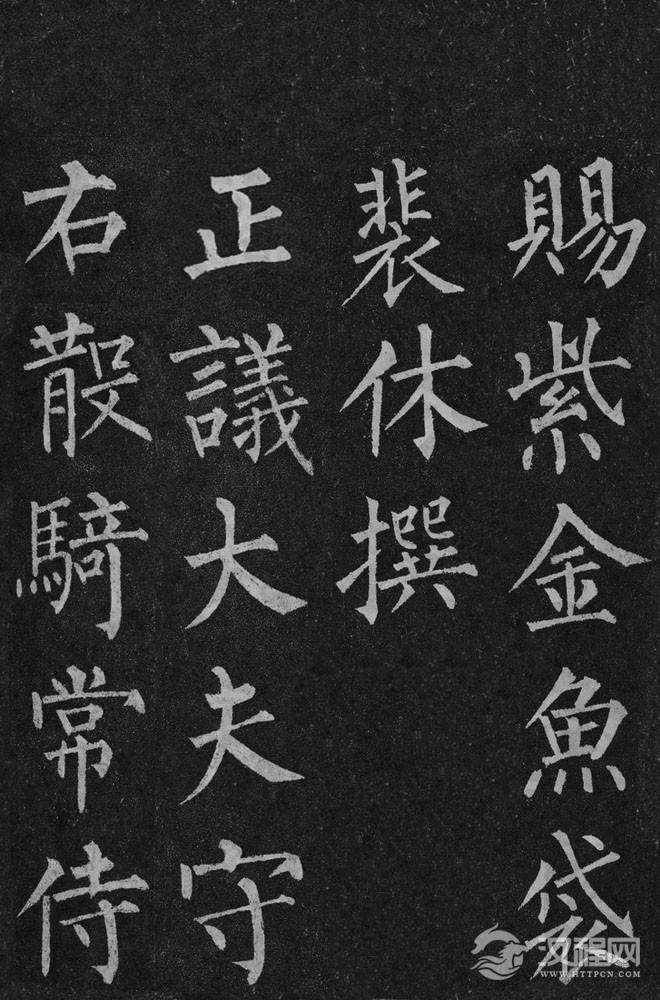 賜紫金魚袋
裴休撰
正議大夫守
右散騎常侍
汉程网
WWW.HTTPCN.COM